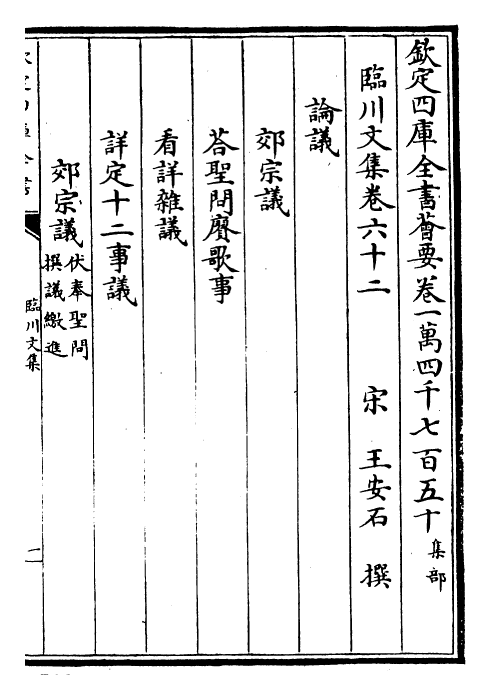 欽定四庫全書薈要卷一萬四千七百五十 集部
臨川文集卷六十二 宋 王安石 撰
論議
郊宗議
荅聖問賡歌事
看詳雜議
詳定十二事議
郊宗議 伏奉聖問撰議繳進
臨川文集